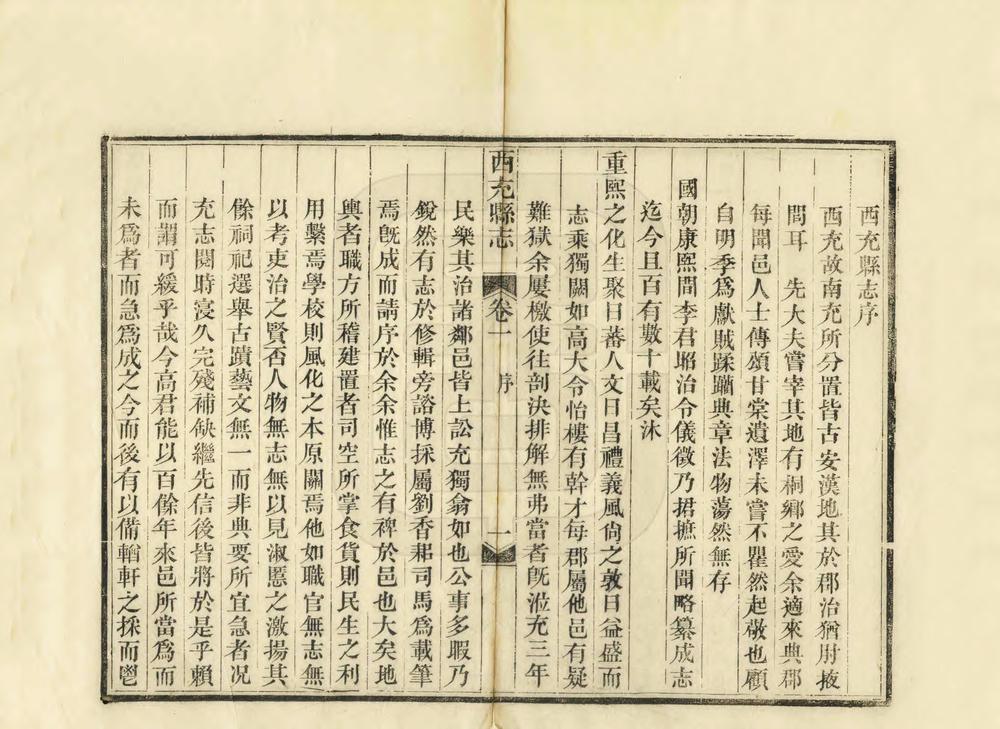 西充縣志序
西充故南充所分置皆古安漢地其於郡治猶肘掖
間耳　先大夫嘗宰其地有桐鄉之愛余適來典郡
每聞邑人士傳頌甘棠遺澤未嘗不瞿然起敬也顧
自明季爲獻賊蹂躪典章法物蕩然無存
國朝康熙間李君昭治令儀徵乃捃摭所聞略纂成志
迄今且百有數十載矣沐
重熙之化生聚日蕃人文日昌禮義風尙之敦日益盛而
志乘獨闕如高大令怡樓有幹才每郡屬他邑有疑
難獄余屢檄使往剖決排解無弗當者旣涖充三年
西充縣志　卷一　序　一
民樂其治諸鄰邑皆上訟充獨翕如也公事多暇乃
銳然有志於修輯旁諮博採屬劉香耜司馬爲載筆
焉旣成而請序於余余惟志之有裨於邑也大矣地
輿者職方所稽建置者司空所掌食貨則民生之利
用繫焉學校則風化之本原關焉他如職官無志無
以考吏治之賢否人物無志無以見淑慝之激揚其
餘祠祀選舉古蹟藝文無一而非典要所宜急者况
充志閱時寖久完殘補缺繼先信後皆將於是乎賴
而謂可緩乎哉今高君能以百餘年來邑所當爲而
未爲者而急爲成之今而後有以備輶軒之採而鬯